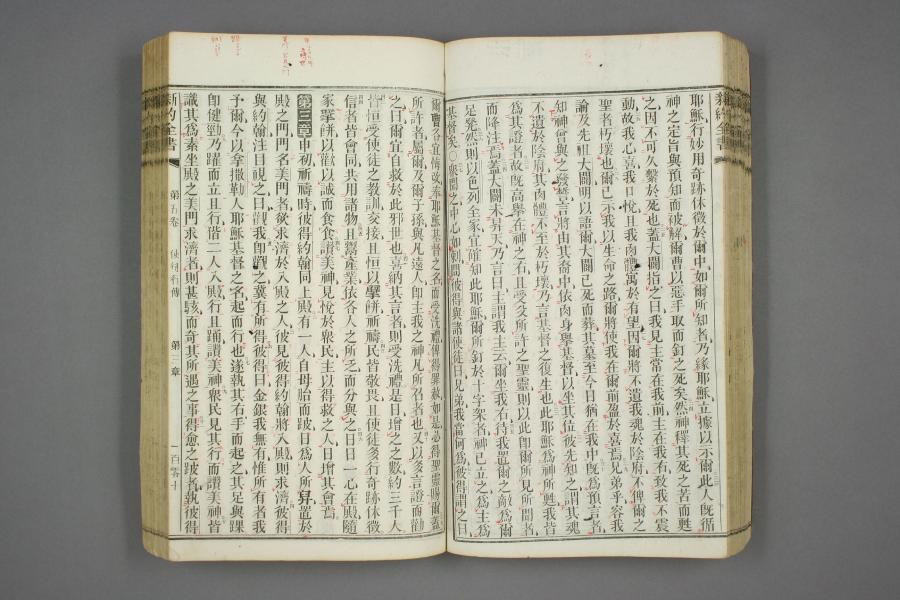 新約全書
耶穌行妙用奇跡休徵於爾中如爾所知者乃緣耶穌立據以示爾此人既循
神之定旨與預知而被解爾曹以惡手取而釘之死矣然神釋其死之苦而甦
之因不可久繫於死也蓋大闢指之曰我見主常在我前主在我右致我不震
動故我心喜我口悅且我肉體寓於有望因爾將不遺我魂於陰府不俾爾之
聖者朽壞也爾已示我以生命之路爾將使我在爾前盈於喜焉兄弟乎容我
論及先祖大闢明以語爾大闢已死而葬其墓至今日猶在我中既為預言者
知神會與之發誓言將由其裔中依肉身舉基督以坐其位彼先知之謂其魂
不遺於陰府其肉體不至於朽壞乃言基督之復生也此耶穌為神所甦我皆
為其證者故既高舉在神之右且受父所許之聖靈則以此即爾所見所聞者
而降注焉蓋大闢未昇天乃言曰主謂我主云爾坐我右待我置爾之敵為爾
足凳然則以色列全家宜確知此耶穌爾所釘於十字架者神已立之為主為
基督矣○眾聞之中心如刺問彼得與諸使徒曰兄弟我當何為彼得謂之曰
爾曹各宜悔改奉耶穌基督之名而受洗禮俾得罪赦如是必得聖靈賜爾蓋
所許者屬爾及爾子孫與凡遠人即主我之神凡所召者也又以多言證而勸
之曰爾宜自救於此邪世也喜納其言者則受洗禮是日增之之數約三千人
皆恒受使徒之教訓交接且恒以擘餅祈禱民皆敬畏且使徒多行奇跡休徵
信者皆會同共用諸物且鬻產業依各人之所乏而分與之日日一心在殿隨
家擘餅以歡以誠而食食讚美神見悅於眾民主以得救之人日增其會焉
第三章申初祈禱時彼得約翰同上殿有一人自母胎而跛日為人所舁置於
殿之門門名美門者欲求濟於入殿之人彼見彼得約翰將入殿則求濟彼得
與約翰注目視之曰觀我即觀之冀有所得彼得曰金銀我無有惟所有者我
予爾今以拿撒勒人耶穌基督之名起而行也遂執其右手而起之其足與踝
即健勁乃躍而立且行偕二人入殿行且踊讚美神眾民見其行而讚美神皆
識其為素坐殿之美門求濟者則甚駭而奇其所遇之事得愈之跛者執彼得
新約全書
第五卷
使徒行傳
第三章
一百零十